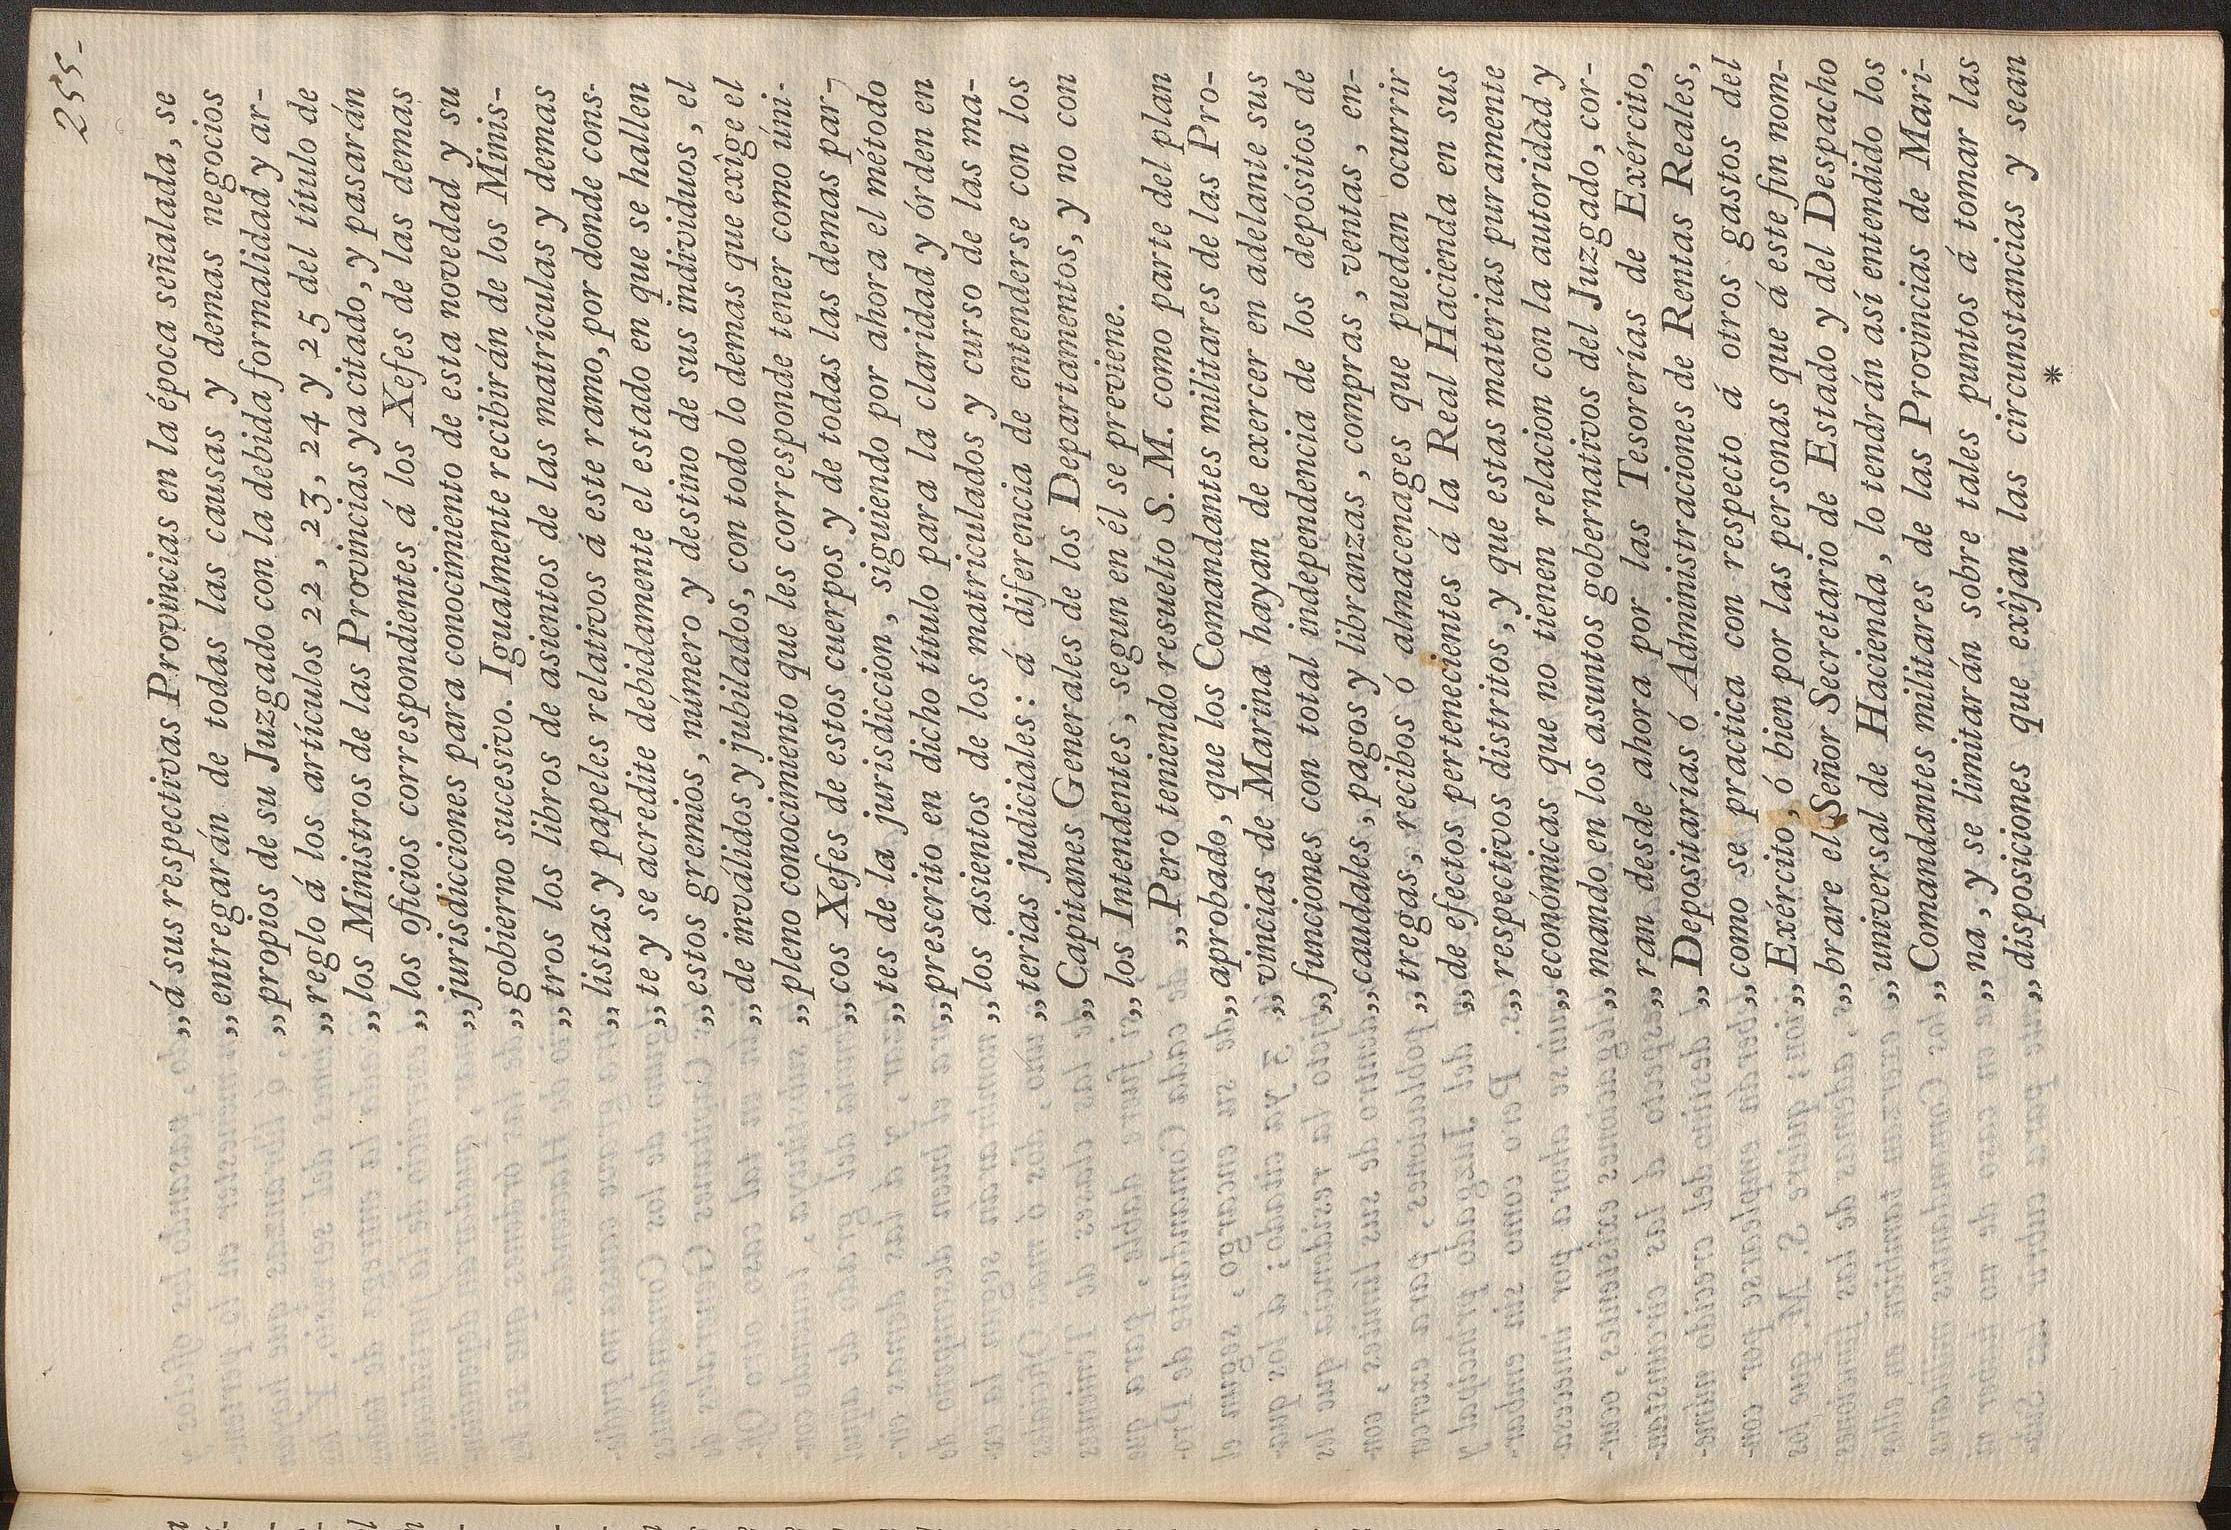 255-
„á sus respectivas Provincias en la época señalada, se
„entregarán de todas las causas y demas negocios
„propios de su Juzgado con la debida formalidad y ar-
„reglo á los artículos 22, 23, 24 y 25 del título de
„los Ministros de las Provincias ya citado, y pasarán
„los oficios correspondientes á los Xefes de las demas
„jurisdicciones para conocimiento de esta novedad y su
„gobierno sucesivo. Igualmente recibirán de los Minis-
„tros los libros de asientos de las matrículas y demas
„listas y papeles relativos á este ramo, por donde cons-
„te y se acredite debidamente el estado en que se hallen
„estos gremios, número y destino de sus individuos, el
„de inválidos y jubilados, con todo lo demas que exîge el
„pleno conocimiento que les corresponde tener como úni-
„cos Xefes de estos cuerpos y de todas las demas par-
„tes de la jurisdiccion, siguiendo por ahora el método
„prescrito en dicho título para la claridad y órden en
„los asientos de los matriculados y curso de las ma-
„terias judiciales: á diferencia de entenderse con los
„Capitanes Generales de los Departamentos, y no con
„los Intendentes, segun en él se previene.
„Pero teniendo resuelto S. M. como parte del plan
„aprobado, que los Comandantes militares de las Pro-
„vincias de Marina hayan de exercer en adelante sus
„funciones con total independencia de los depósitos de
„caudales, pagos y libranzas, compras, ventas, en-
„tregas, recibos ó almacenages que puedan ocurrir
„de efectos pertenecientes á la Real Hacienda en sus
„respectivos distritos, y que estas materias puramente
„económicas que no tienen relacion con la autoridad y
„mando en los asuntos gobernativos del Juzgado, cor-
„ran desde ahora por las Tesorerías de Exército,
„Depositarías ó Administraciones de Rentas Reales,
„como se practica con respecto á otros gastos del
„Exército, ó bien por las personas que á este fin nom-
„brare el Señor Secretario de Estado y del Despacho
„universal de Hacienda, lo tendrán así entendido los
„Comandantes militares de las Provincias de Mari-
„na, y se limitarán sobre tales puntos á tomar las
„disposiciones que exîjan las circunstancias y sean
*